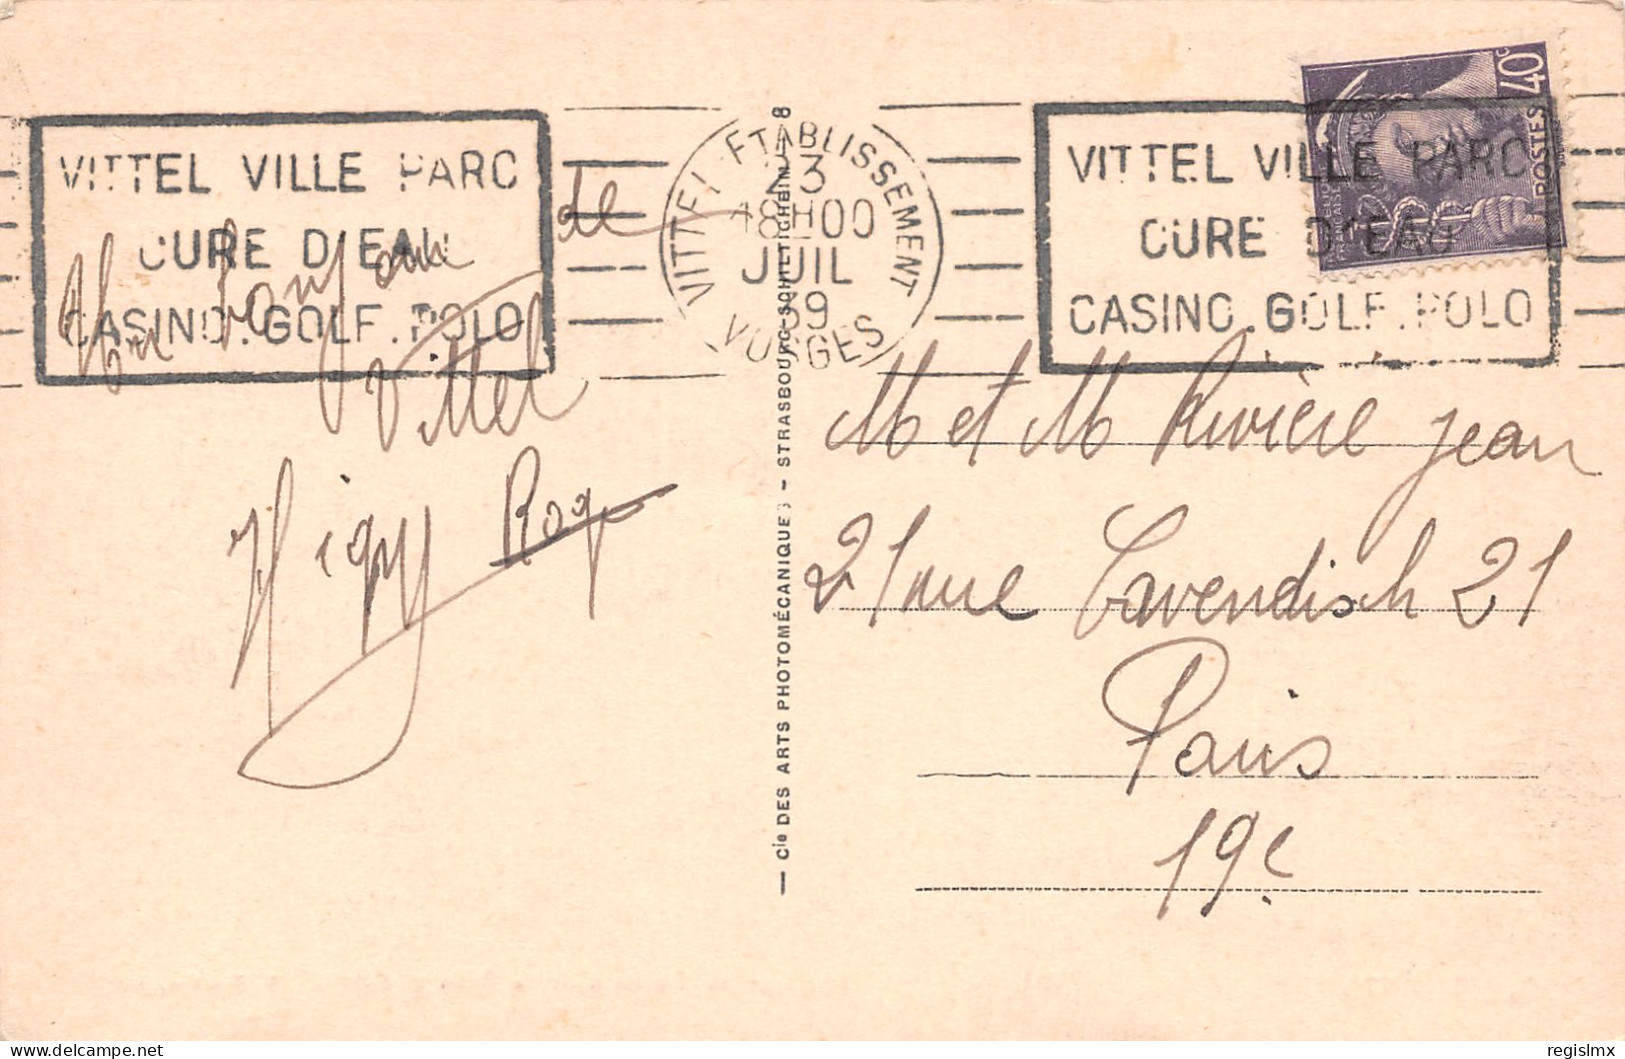 VITTEL VILLE PARC
CURE D'EAU
CASINO. GOLF. POLO
VITTEL ETABLISSEMENT
23
18H00
JUIL
39
VOSGES
VITTEL VILLE PARC
CURE D'EAU
CASINO. GOLF. POLO
40c
POSTES
Un bonjour de
Vittel
Roq
M et M Rivière Jean
21 rue Cavendish 21
Paris
19e
— Cie DES ARTS PHOTOMÉCANIQUES - STRASBOURG-SCHILTIGHEIM 8
regislmx